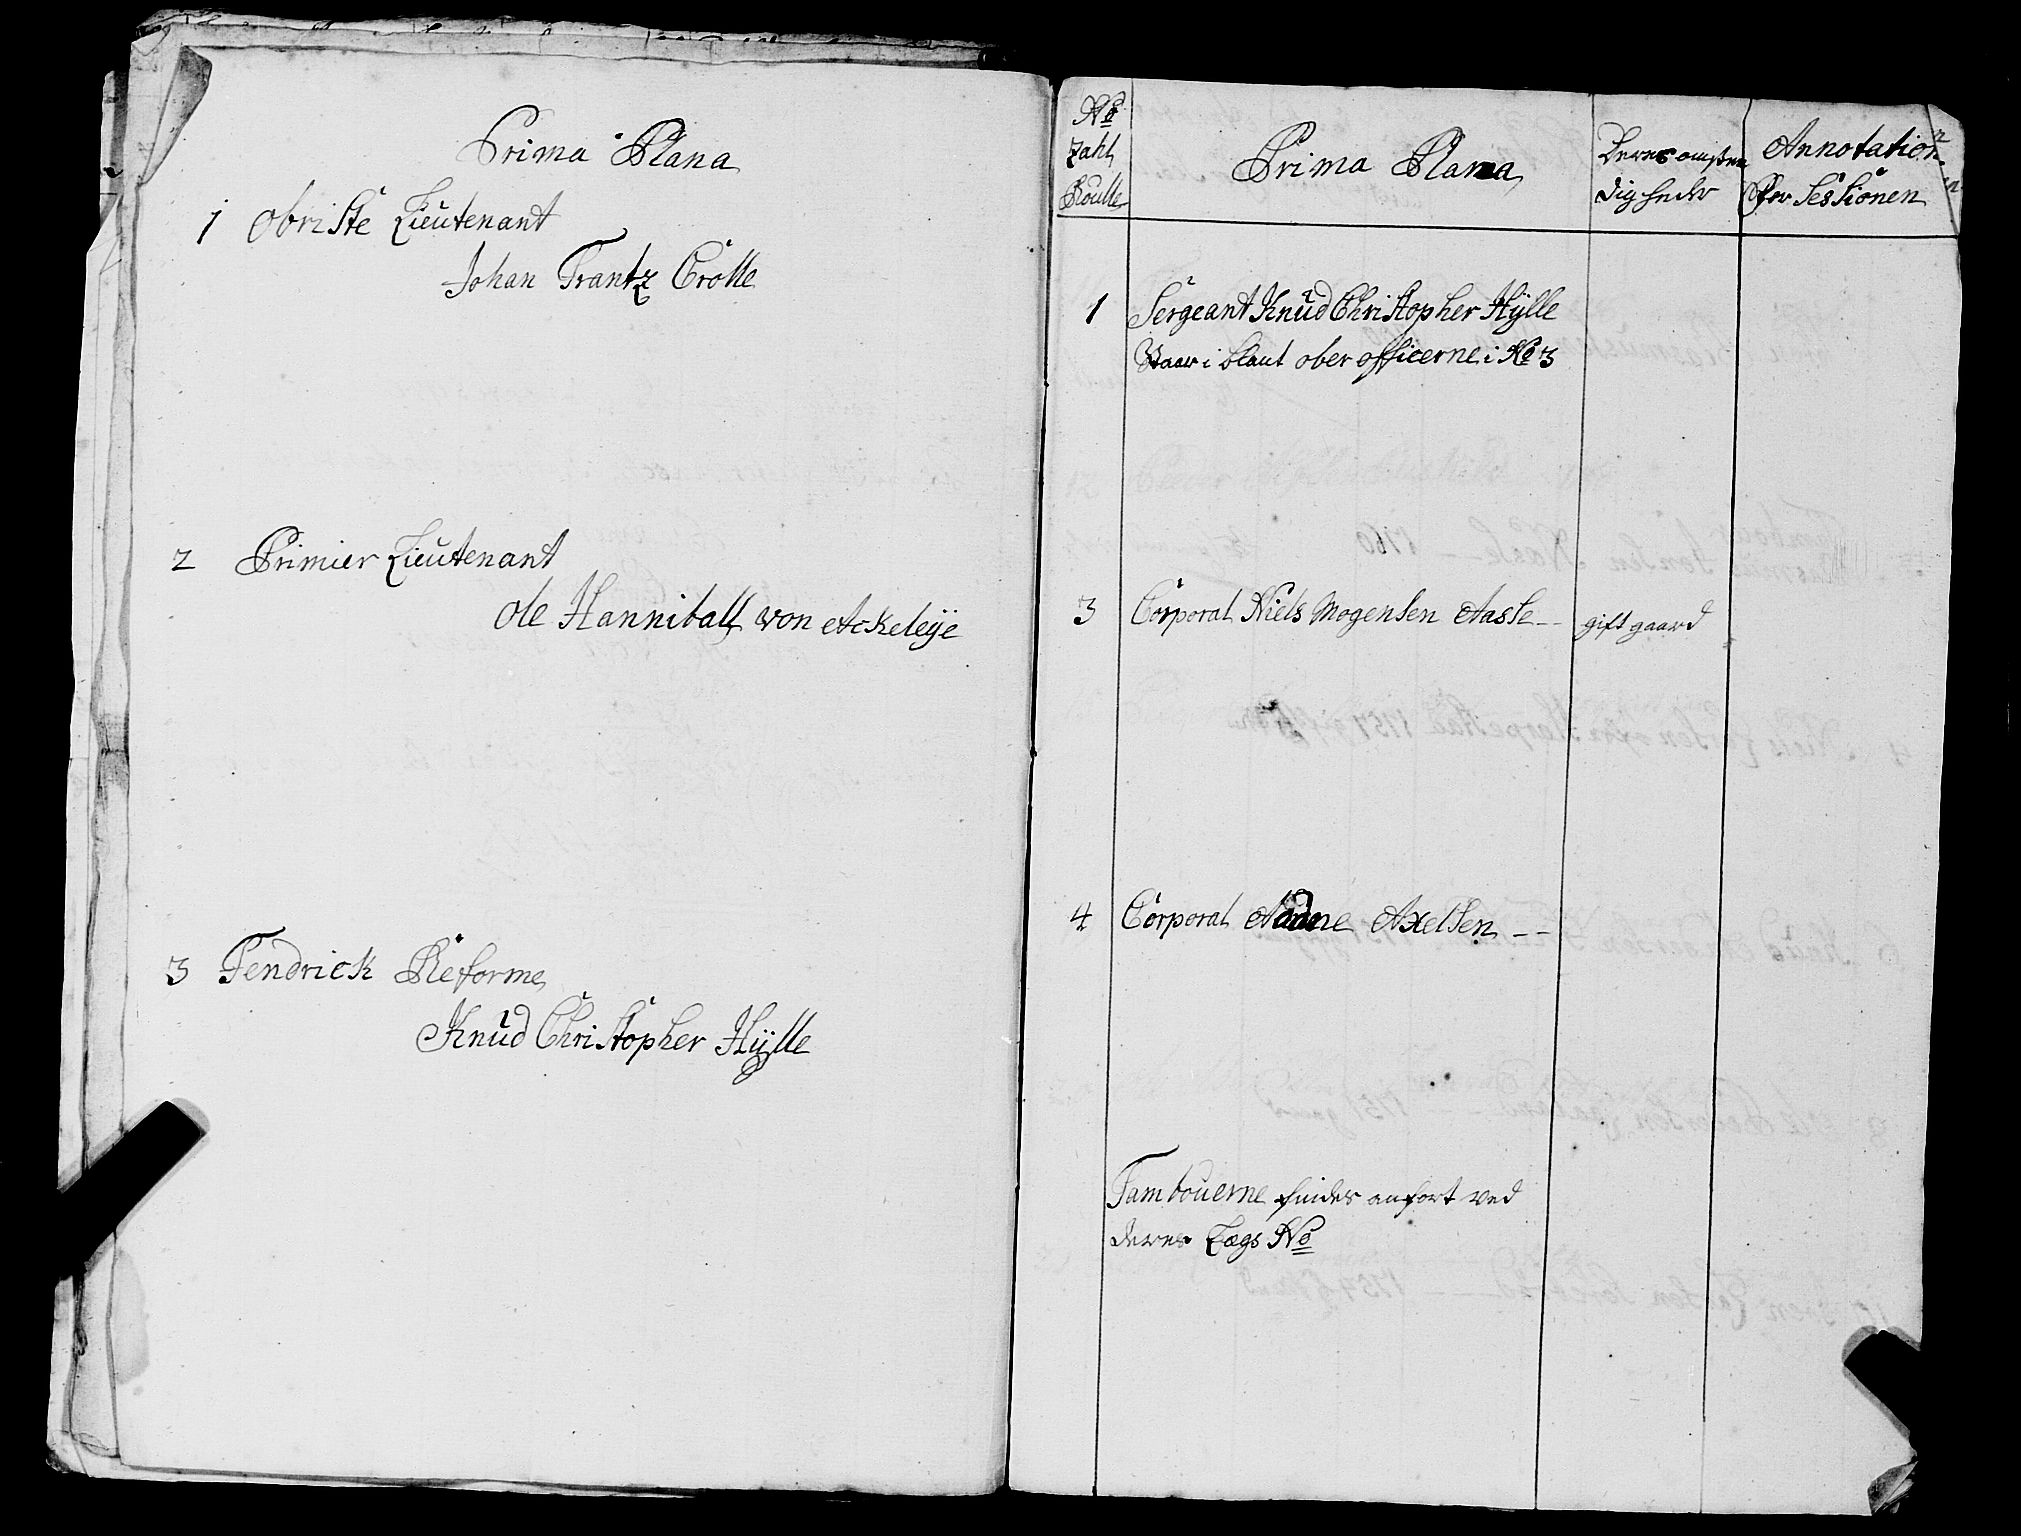 Prima Plana
1 Obriste Lieutenant
Johan Frantz Crolle
2 Primier Lieutenant
Ole Hanniball von Ackeleije
3 Fendrick Reforme
Knud Christopher Hylle
No
Zahl
Roulle
Prima Plana
Deres omsten
digheder
Annotation
for Sessionen
1 Sergeant Knud Christopher Hylle
Staar i blant ober officerne i No 3
3 Corporal Niels Mogensen Aasle -- gift gaard
4 Corporal Axelsen --
Tambouerne findes anfort ved
deres Lægs No